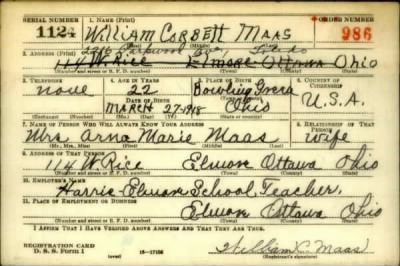 SERIAL NUMBER 1. NAME (Print) ORDER NUMBER
1124 William Corbett Maas 986
(First) (Middle) (Last)
Parkwood Ave, Toledo
2. ADDRESS (Print)
114 W. Rice Elmore Ottawa Ohio
(Number and street or R. F. D. number) (Town) (County) (State)
3. TELEPHONE 4. AGE IN YEARS 5. PLACE OF BIRTH 6. COUNTRY OF CITIZENSHIP
none 22 Bowling Green
DATE OF BIRTH (Town or county)
March 27-1918 Ohio U.S.A.
(Exchange) (No.) (Mo.) (Day) (Yr.) (State or country)
7. NAME OF PERSON WHO WILL ALWAYS KNOW YOUR ADDRESS 8. RELATIONSHIP OF THAT PERSON
Mrs Arno Marie Maas wife
(Mr., Mrs., Miss) (First) (Middle) (Last)
9. ADDRESS OF THAT PERSON
114 W. Rice Elmore Ottawa Ohio
(Number and street or R. F. D. number) (Town) (County) (State)
10. EMPLOYER'S NAME
Harris Elmore School, Teacher,
11. PLACE OF EMPLOYMENT OR BUSINESS
Elmore Ottawa Ohio
(Number and street or R. F. D. number) (Town) (County) (State)
I AFFIRM THAT I HAVE VERIFIED ABOVE ANSWERS AND THAT THEY ARE TRUE.
REGISTRATION CARD
D. S. S. Form 1 (over) 16-17105 William C. Maas
(Registrant's signature)